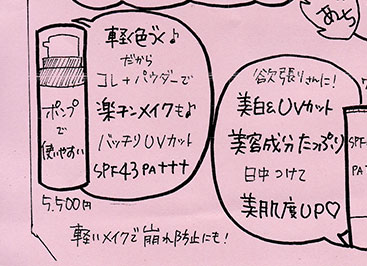 あら
軽く色づく♪
だから
コレ+パウダーで
楽チンメイクも♪
バッチリUVカット
SPF43 PA+++
ポンプ
で
使いやすい
5,500円
軽いメイクで崩れ防止にも!
欲張りさんに!
美白&UVカット
美容成分たっぷり
日中つけて
美肌度UP♡
SPF
PA